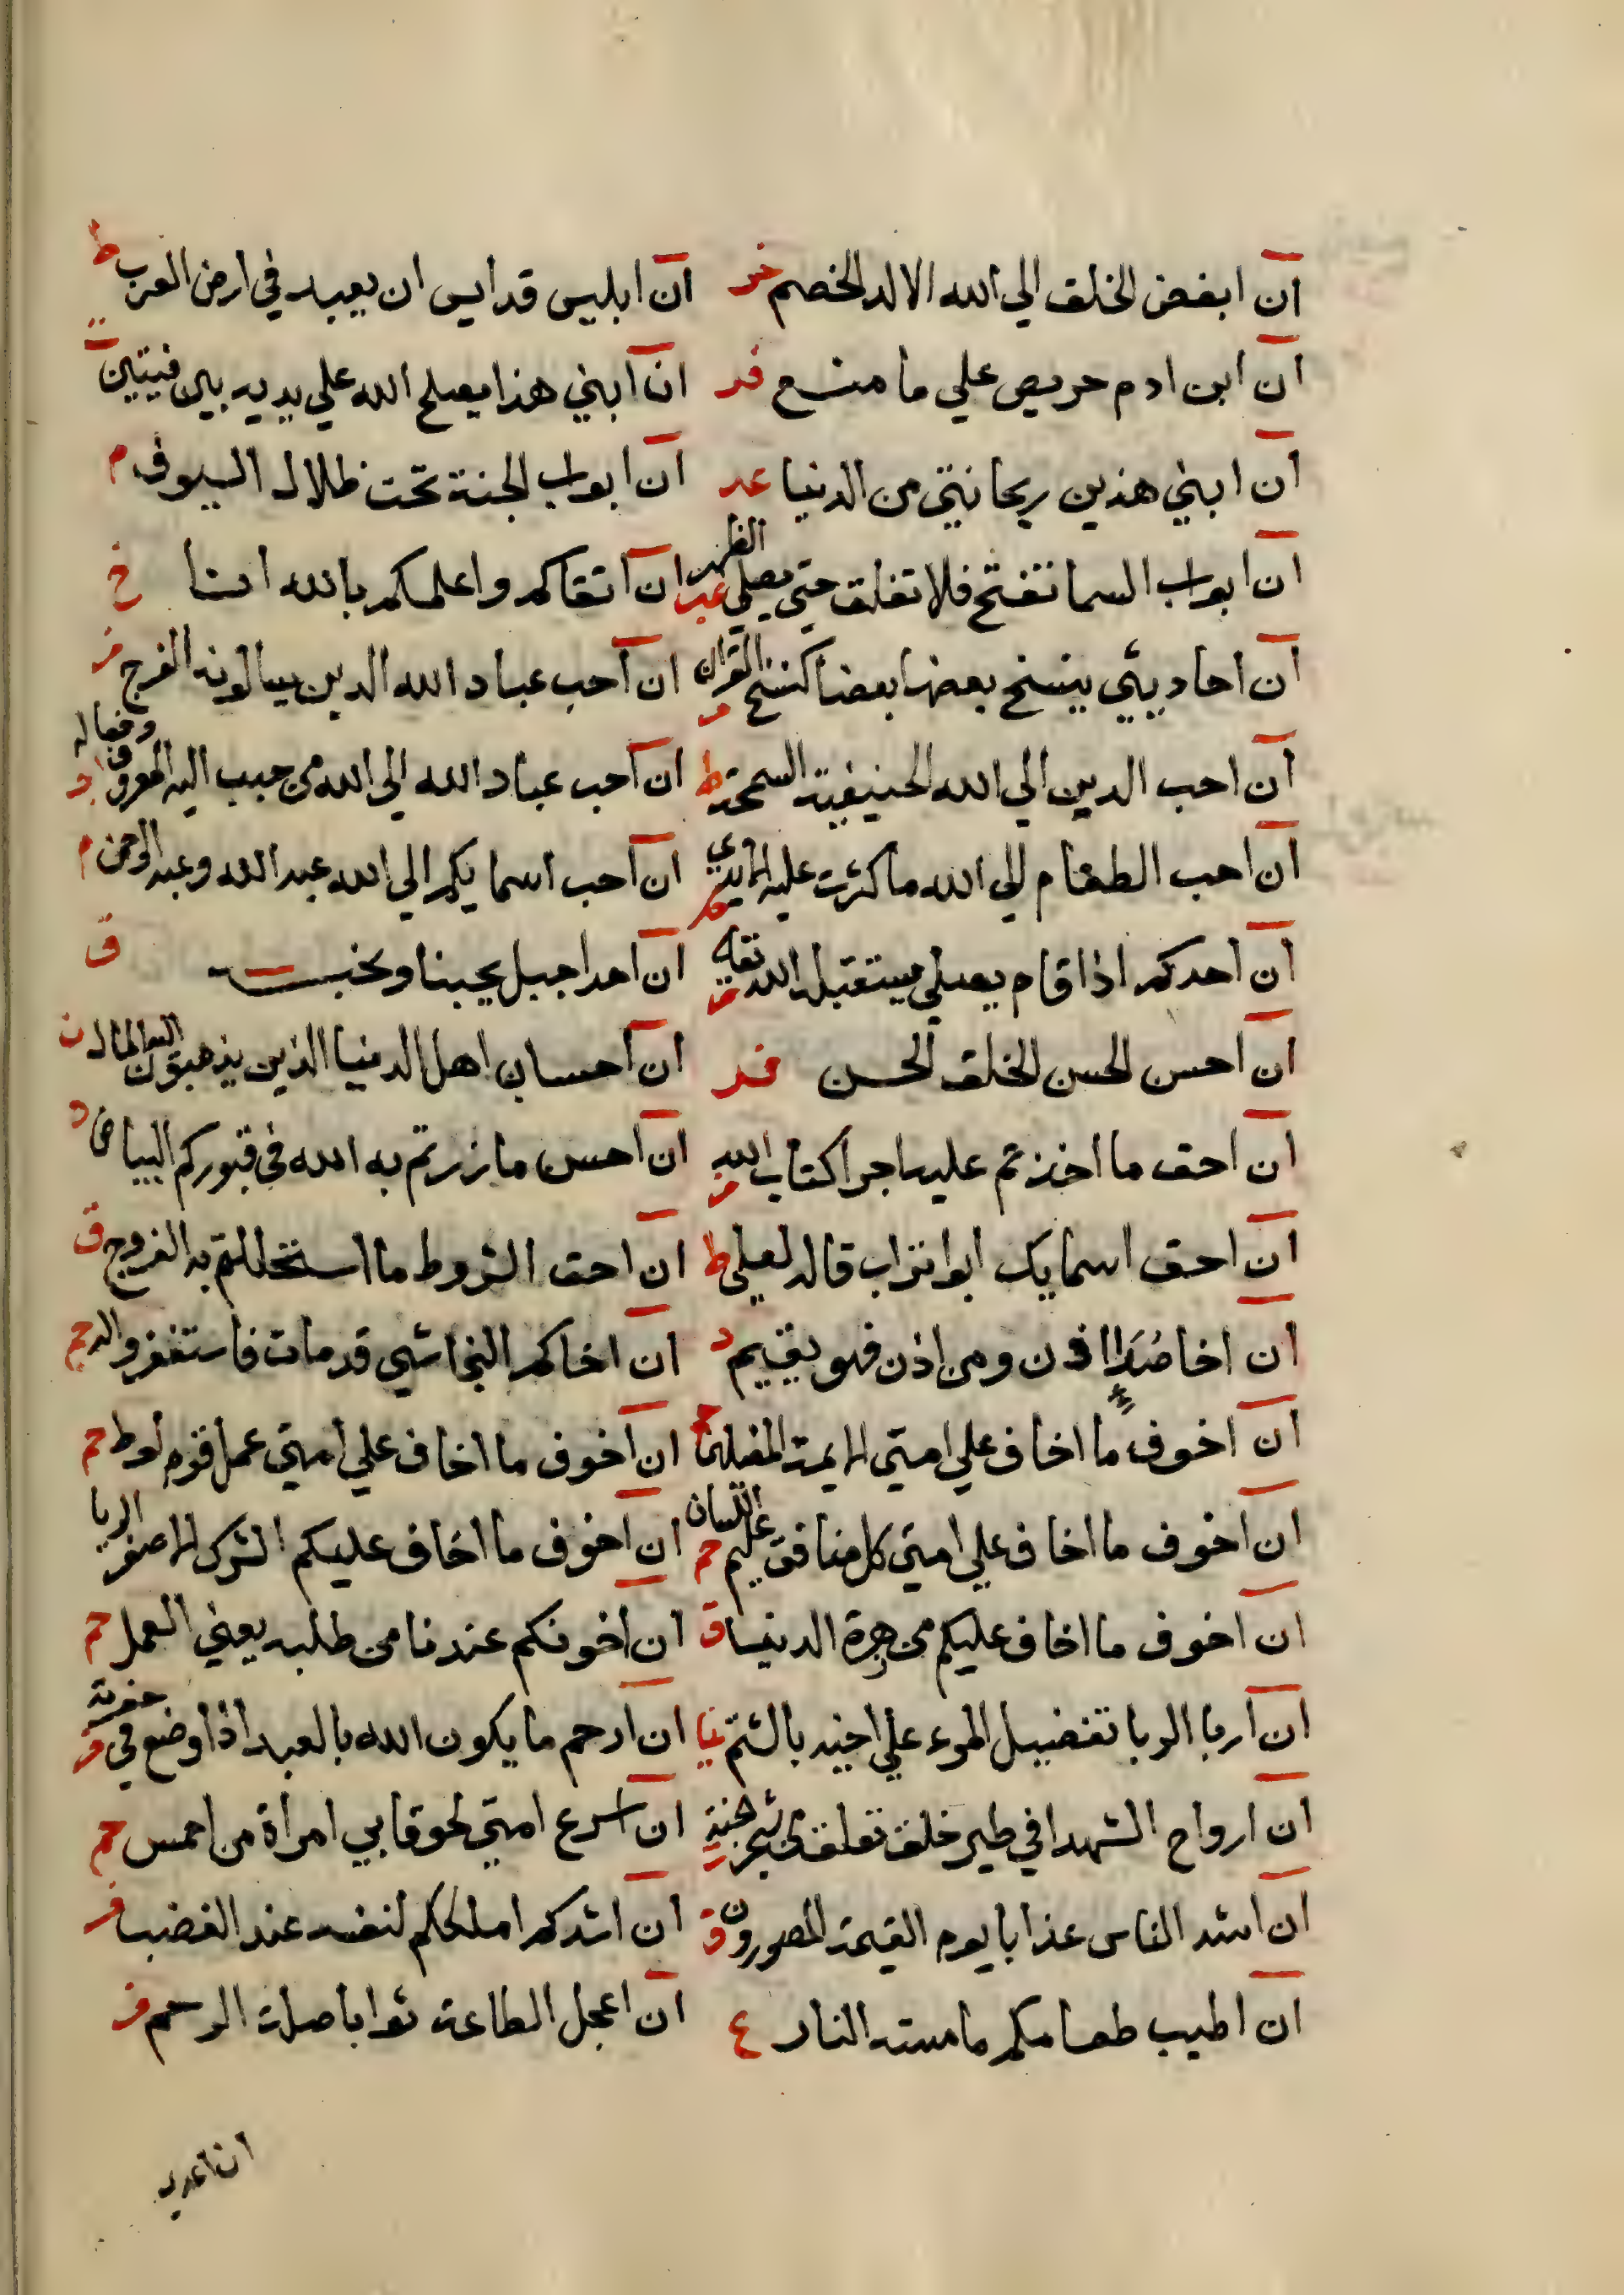 ان ابغض الخلق الي الله الالد الخصم خد ان ابليس قد ايس ان يعبد في ارض العرب ط
ان ابن ادم حريص علي ما منع فر ان ابني هذا يصلح الله علي يديه بين فيتين
ان ابني هذين ريحانتي من الدنيا عد ان ابواب الجنة تحت ظلال السيوف م
ان ابواب السما تفتح فلا تغلق حتي يصلي الظهر عد ان اتقاكم واعلمكم بالله انا خ
ان احاديثي ينسخ بعضها بعضا كنسخ القران ان احب عباد الله الذين يسالونه الفرج
ان احب الدين الي الله الحنيفية السمحة ط ان احب عباد الله الي الله من حبب اليه المعروف وفعاله
ان احب الطعام الي الله ما كثرت عليه الايدي ان احب اسمايكم الي الله عبد الله وعبد الرحمن م
ان احدكم اذا قام يصلي يستقبله الله ان احدا جبل يحبنا ونحبه ق
ان احسن الحسن الخلق الحسن فر ان احساب اهل الدنيا الذين يذهبون اليه المال ن
ان احق ما اخذتم عليه اجرا كتاب الله ان احسن ما زرتم به الله في قبوركم البياض د
ان احق اسمايك ابو اتراب قال لعلي ط ان احق الشروط ما استحللتم به الفروج ق
ان اخا صُدَاء اذن ومن اذن فهو يقيم د ان اخاكم النجاشي قد مات فاستغفروا له حم
ان اخوف ما اخاف علي امتي الايمة المضلين حم ان اخوف ما اخاف علي امتي عمل قوم لوط حم
ان اخوف ما اخاف علي امتي كل منافق عليم اللسان حم ان اخوف ما اخاف عليكم الشرك الاصغر الريا
ان اخوف ما اخاف عليكم من زهرة الدنيا ق ان اخونكم عندنا من طلبه يعني العمل حم
ان اربا الربا تفضيل المرء علي اخيه بالشتم نيا ان ارحم ما يكون الله بالعبد اذا وضع في حفرته فر
ان ارواح الشهدا في طير خلق تعلق من شجر الجنة ان اسرع امتي لحوقا بي امراة من احمس حم
ان اشد الناس عذابا يوم القيمة المصورون ق ان اشدكم املككم لنفسه عند الغضب فر
ان اطيب طعامكم ما مسته النار ع ان اعجل الطاعة ثوابا صلة الرحم فر